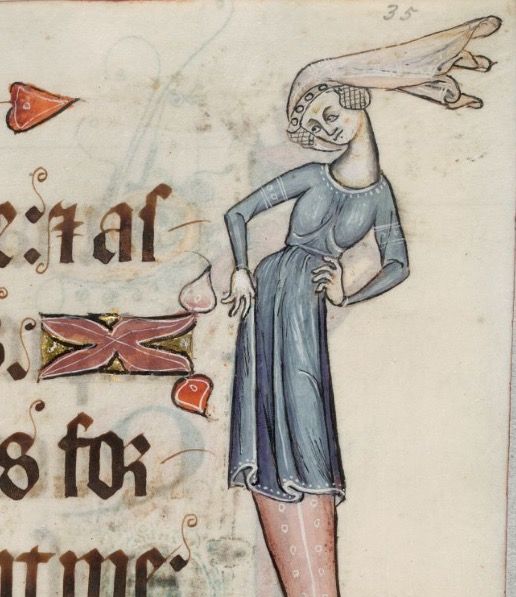 35
e:⁊ aſ
s.
s foꝛ
nt me: